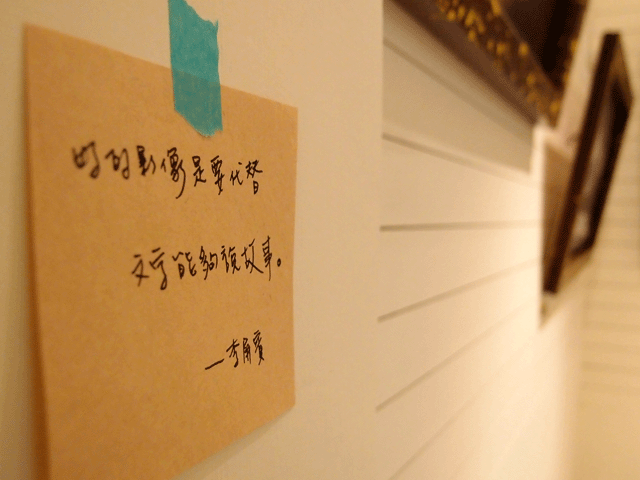 好的影像是要代替
文字能夠說故事。
—李屏賓